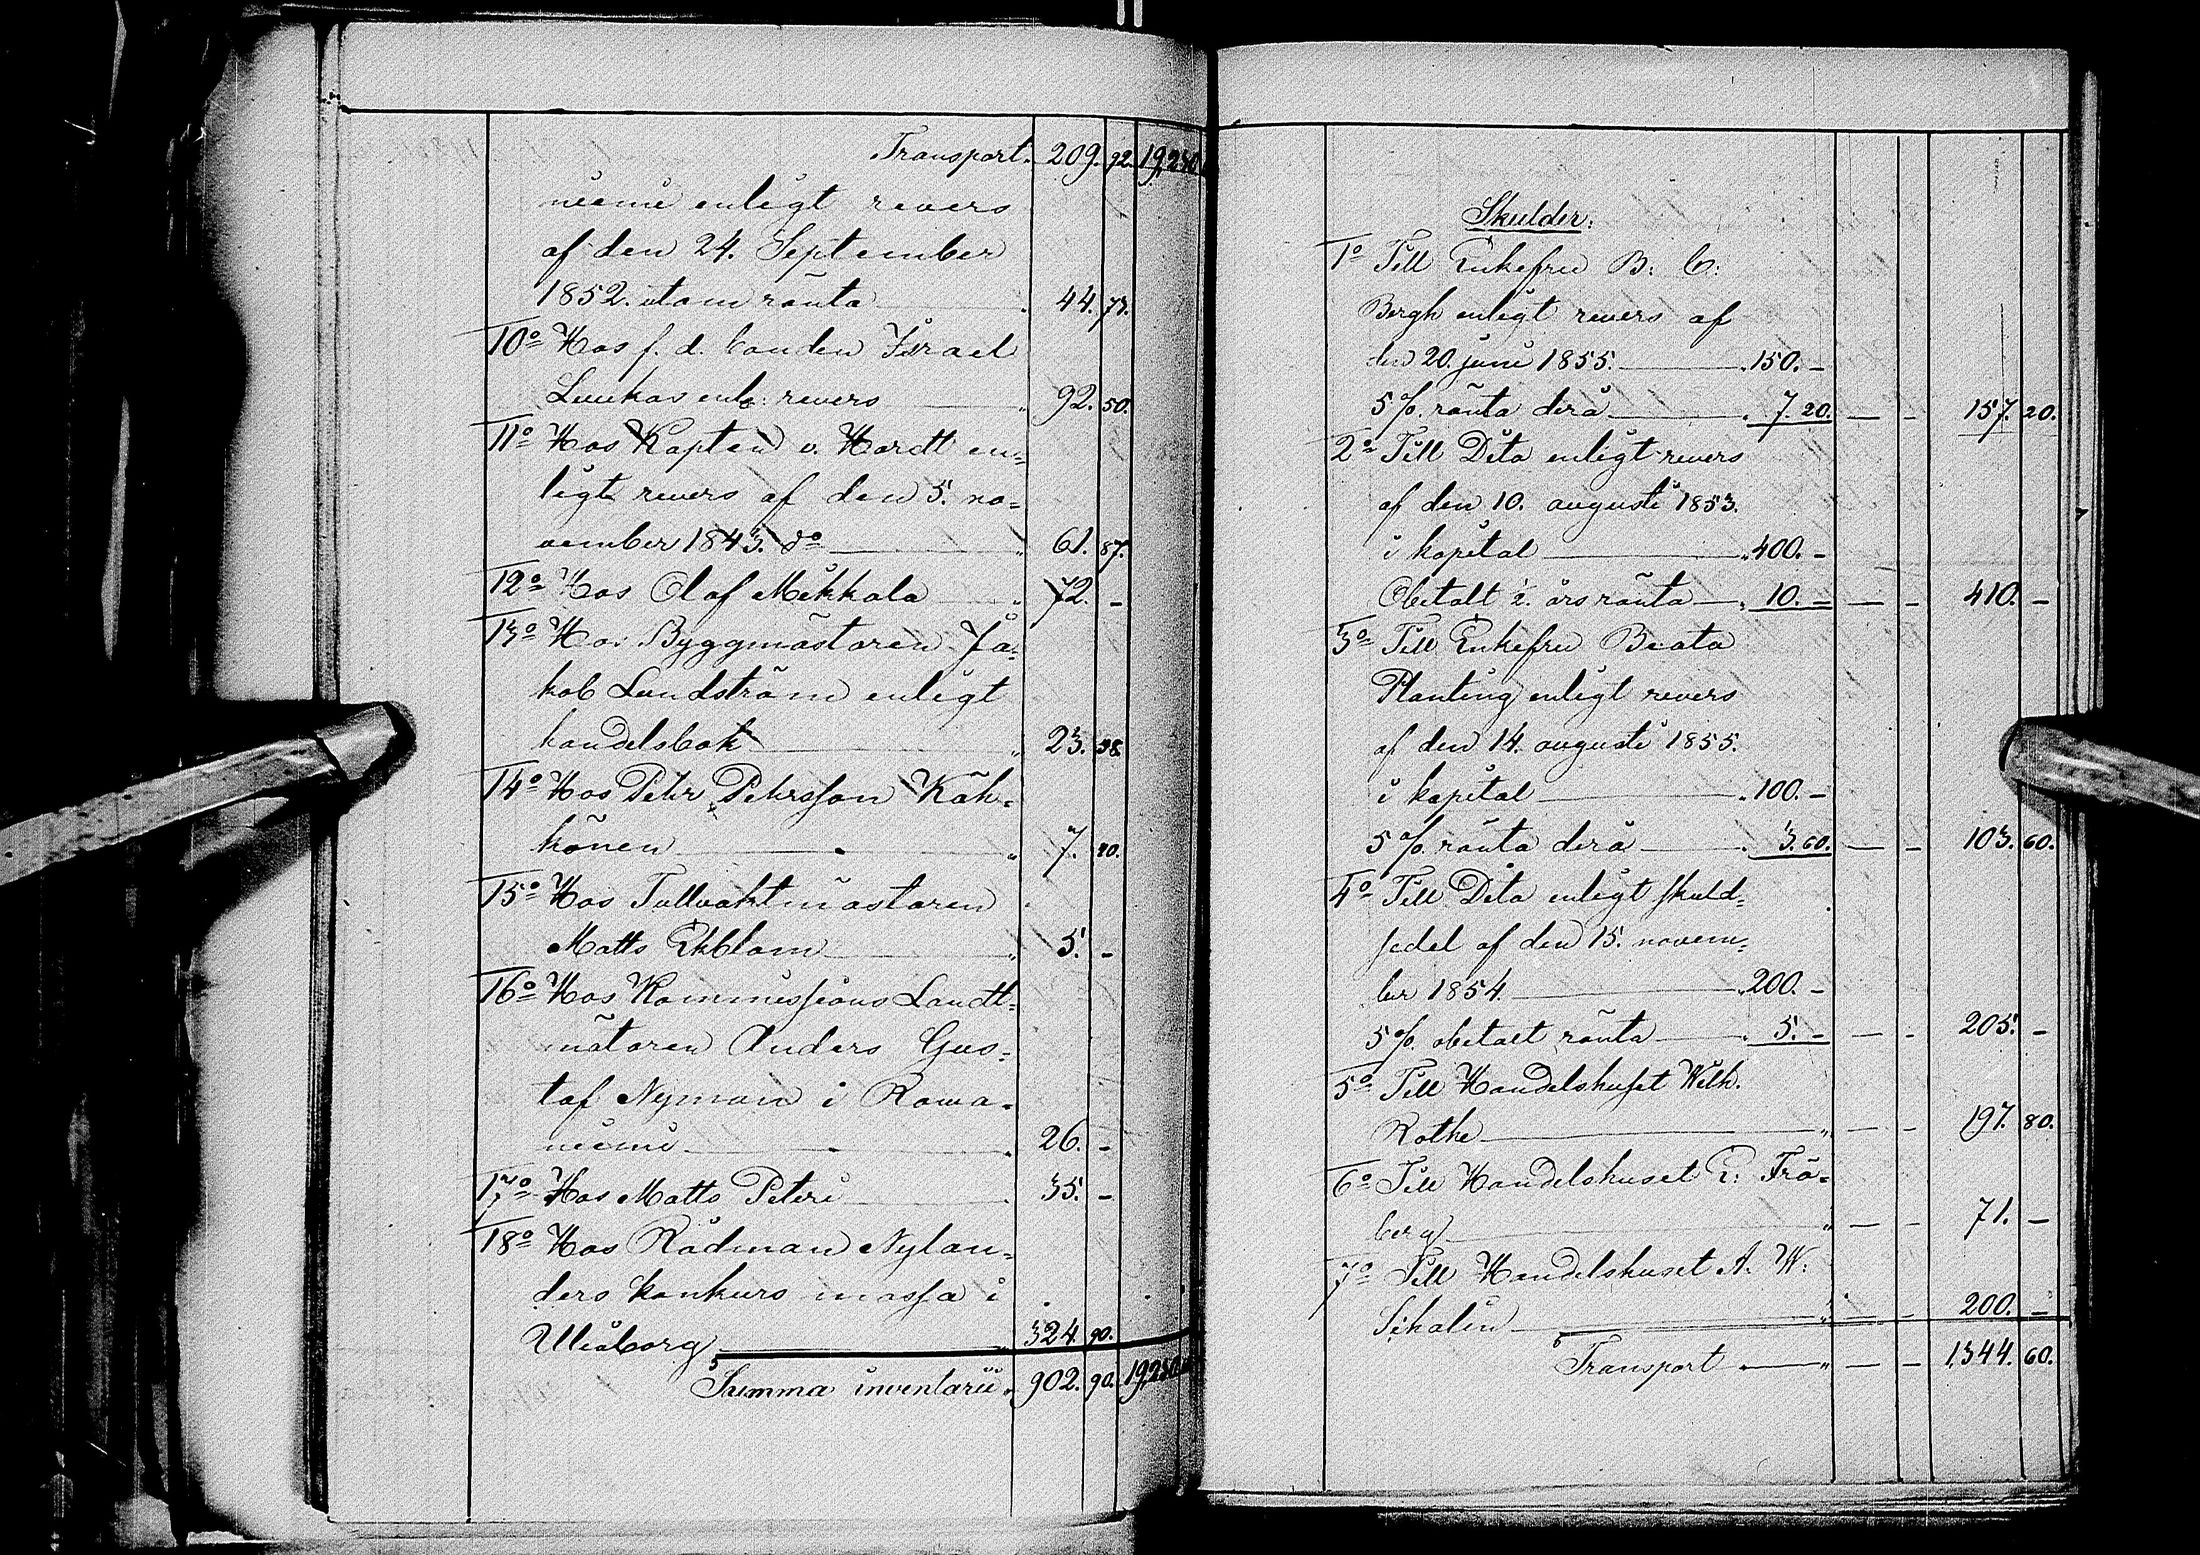 Transport. 209. 92. 19,230
niemi enligt revers
af den 24. September
1852. utom ränta 44. 73.
10o Hos f. d. bonden Israel
Luukas enl: revers 92. 50.
11o Hos Kapten v. Hardt en=
ligt revers af den 5. no=
vember 1843. do 61. 87.
12o Hos Olof Mikkola 72. -
13o Hos Byggmästaren Ja=
kob Lundström enligt
handelsbok 23. 38.
14o Hos Petter Petersson Käh=
könen 7. 20.
15o Hos Tullvaktmästaren
Matts Ekblom 5. -
16o Hos Kommissions Landt=
mätaren Anders Gus=
taf Nyman i Rowa=
niemi 26. -
17o Hos Matts Peteri 35. -
18o Hos Rådman Nylan=
ders konkurs massa i
Uleåborg 324. 90.
Summa inventarii 902. 90. 19,230
Skulder:
1o Till Enkefru B: C:
Bergh enligt revers af
den 20. juni 1855. 150. -
5 %. ränta derå 7. 20. — - 157. 20.
2o Till Dito enligt revers
af den 10. augusti 1853.
i kapital 400. -
Obetalt ½ års ränta 10. - — - 410. -
3o Till Enkefru Beata
Planting enligt revers
af den 14. augusti 1855.
i kapital 100. -
5 %. ränta derå 3. 60. — - 103. 60.
4o Till Dito enligt skuld=
sedel af den 15. novem=
ber 1854. 200. -
5 %. obetalt ränta 5. - — - 205. -
5o Till Handelshuset Wilh.
Rothe — - 197. 80.
6o Till Handelshuset E: Frö=
berg — - 71. -
7o Till Handelshuset A. W:
Schalin — - 200. -
Transport — - 1,344. 60.